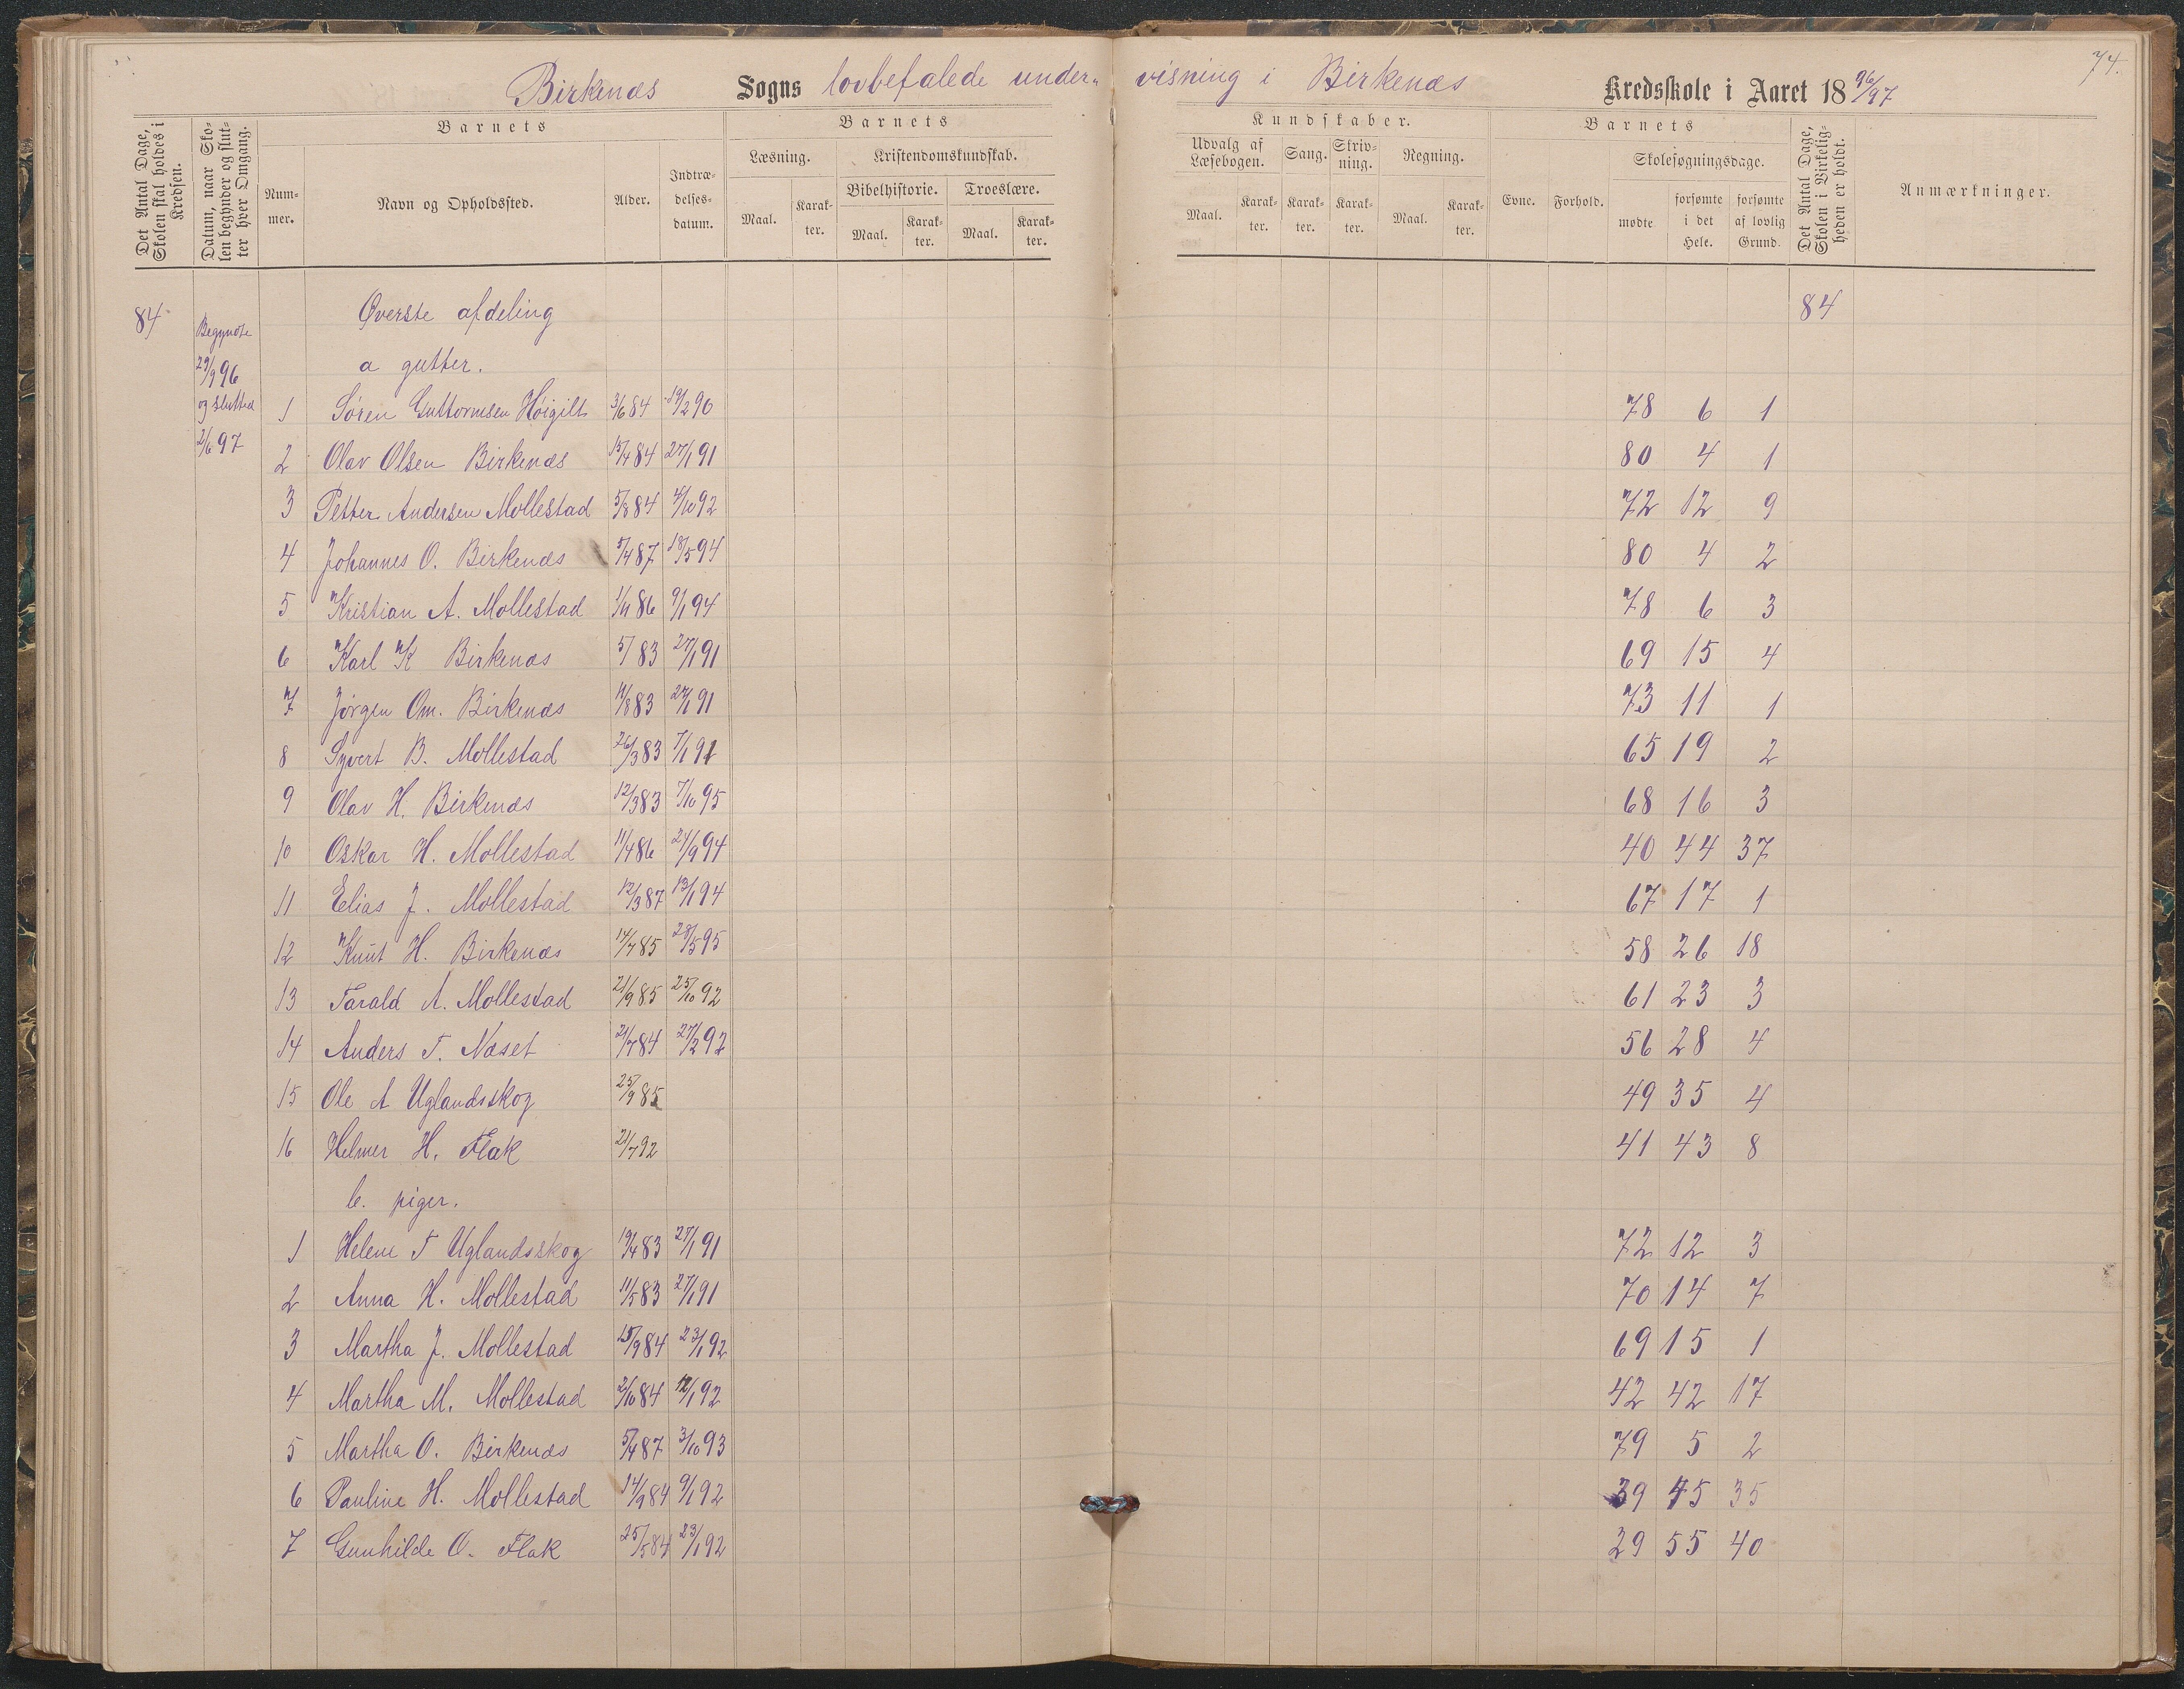 74.
Birkenæs Sogns lovbefalede under- visning i Birkenæs Kredsskole i Aaret 18 96/97
Det Antal Dage, Skolen skal holdes i Kredsen.
Datum, naar Skolen begynder og slutter hver Omgang.
Barnets
Nummer.
Navn og Opholdssted.
Alder.
Indtrædelsesdatum.
Barnets
Læsning.
Maal.
Karakter.
Kristendomskundskab.
Bibelhistorie.
Maal.
Karakter.
Troeslære.
Maal.
Karakter.
Kundskaber.
Udvalg af Læsebogen.
Maal.
Karakter.
Sang.
Karakter.
Skrivning.
Karakter.
Regning.
Maal.
Karakter.
Barnets
Evne.
Forhold.
Skolesøgningsdage.
mødte
forsømte i det Hele.
forsømte af lovlig Grund.
Det Antal Dage, Skolen i Virkeligheden er holdt.
Anmærkninger.
84 Øverste afdeling 84
Begyndte
29/9 96 a gutter.
og slutted 1 Søren Guttormsen Høigilt 3/6 84 19/2 90 78 6 1
2/6 97 2 Olav Olsen Birkenæs 15/4 84 27/1 91 80 4 1
3 Petter Andersen Mollestad 5/8 84 4/10 92 72 12 9
4 Johannes O. Birkenæs 5/4 87 18/5 94 80 4 2
5 Kristian A. Mollestad 1/11 86 9/1 94 78 6 3
6 Karl K Birkenæs 5/ 83 27/1 91 69 15 4
7 Jørgen Om. Birkenæs 11/8 83 27/1 91 73 11 1
8 Syvert B. Mollestad 26/3 83 7/1 91 65 19 2
9 Olav H. Birkenæs 12/3 83 7/10 95 68 16 3
10 Oskar H. Mollestad 11/4 86 24/9 94 40 44 37
11 Elias J. Mollestad 12/3 87 13/1 94 67 17 1
12 Knut H. Birkenæs 14/7 85 28/5 95 58 26 18
13 Tarald A. Mollestad 21/9 85 25/10 92 61 23 3
14 Anders T. Næset 21/7 84 27/2 92 56 28 4
15 Ole A Uglandsskog 25/9 85 49 35 4
16 Helmer H. Flak 21/7 92 41 43 8
b. piger.
1 Helene T Uglandsskog 19/4 83 27/1 91 72 12 3
2 Anna H. Mollestad 11/5 83 27/1 91 70 14 7
3 Martha J. Mollestad 15/9 84 23/1 92 69 15 1
4 Martha M. Mollestad 2/10 84 12/1 92 42 42 17
5 Martha O. Birkenæs 5/4 87 3/10 93 79 5 2
6 Pauline H. Mollestad 14/9 84 9/1 92 39 45 35
7 Gunhilde O. Flak 25/5 84 23/1 92 29 55 40